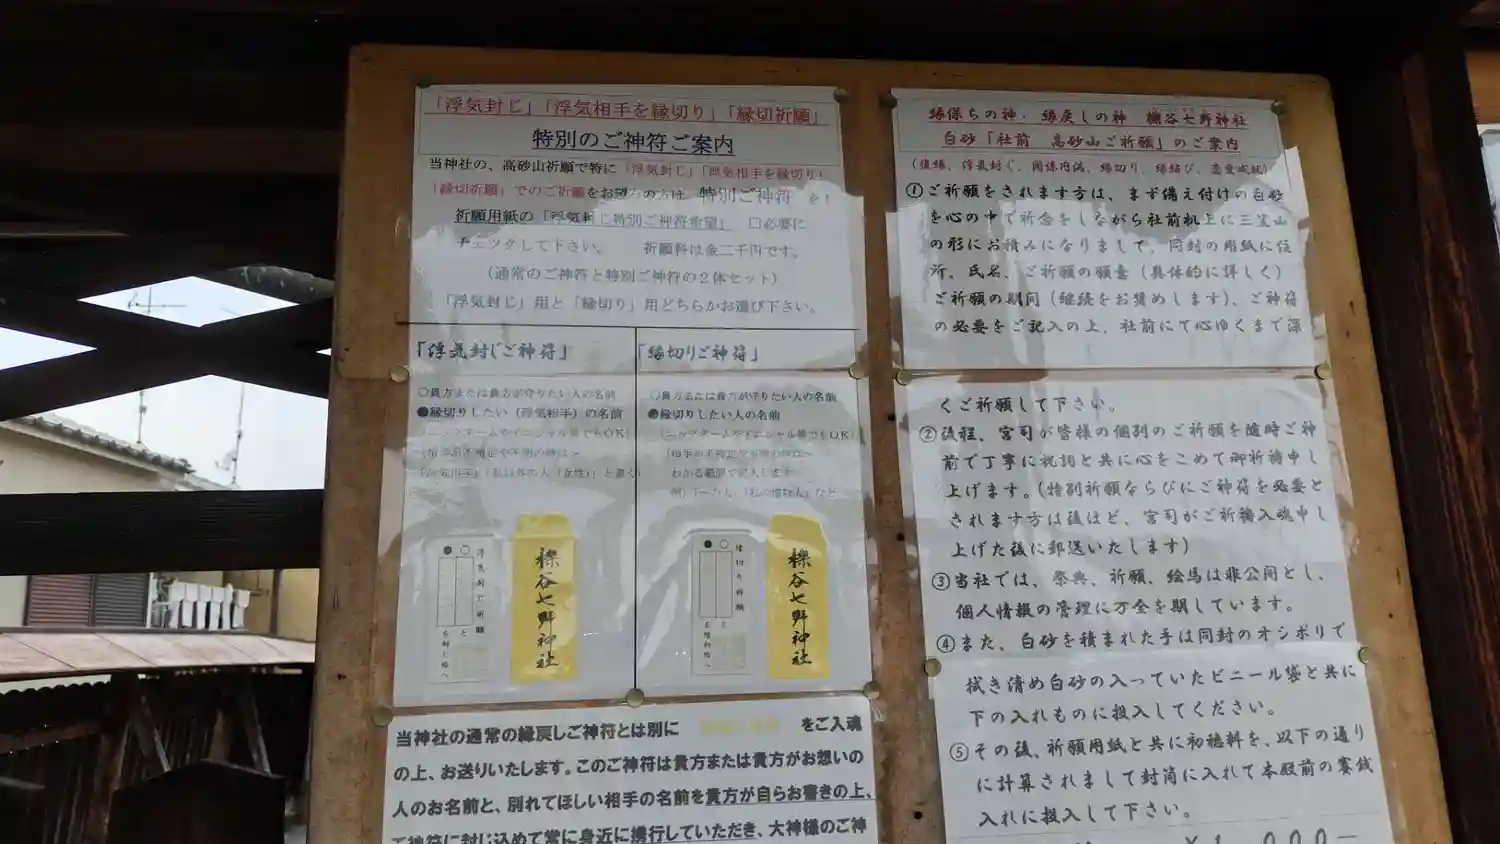 「浮気封じ」「浮気相手を縁切り」「縁切祈願」
特別のご神符ご案内
当神社の、高砂山祈願で特に「浮気封じ」「浮気相手を縁切り」
「縁切祈願」でのご祈願をお望みの方は、特別ご神符 を！
祈願用紙の「浮気封じ特別ご神符希望」 □必要に
チェックして下さい。 祈願料は金二千円です。
（通常のご神符と特別ご神符の２体セット）
「浮気封じ」用と「縁切り」用どちらかお選び下さい。
「浮気封じご神符」
○貴方または貴方が守りたい人の名前
●縁切りしたい（浮気相手）の名前
（ニックネームやイニシャル等でもOK）
浮気封じ祈願
と
を封じ給へ
櫟谷七野神社
「縁切りご神符」
○貴方または貴方が守りたい人の名前
●縁切りしたい人の名前
（ニックネームやイニシャル等でもOK）
わかる範囲で記入します
縁切り祈願
と
櫟谷七野神社
当神社の通常の縁戻しご神符とは別に をご入魂
の上、お送りいたします。このご神符は貴方または貴方がお想いの
人のお名前と、別れてほしい相手の名前を貴方が自らお書きの上、
ご神符に封じ込めて常に身近に携行していただき、大神様のご神
縁保ちの神・縁戻しの神 櫟谷七野神社
白砂「社前 高砂山ご祈願」のご案内
（復縁、浮気封じ、関係円満、縁切り、縁結び、恋愛成就）
①ご祈願をされます方は、まず備え付けの白砂
を心の中で祈念をしながら社前机上に三笠山
の形にお積みになりまして、同封の用紙に住
所、氏名、ご祈願の願意（具体的に詳しく）
ご祈願の期間（継続をお奨めします）、ご神符
の必要をご記入の上、社前にて心ゆくまで深
くご祈願して下さい。
②後程、宮司が皆様の個別のご祈願を随時ご神
前で丁寧に祝詞と共に心をこめて御祈祷申し
上げます。（特別祈願ならびにご神符を必要と
されます方は後ほど、宮司がご祈祷入魂申し
上げた後に郵送いたします）
③当社では、祭典、祈願、絵馬は非公開とし、
個人情報の管理に万全を期しています。
④また、白砂を積まれた手は同封のオシボリで
拭き清め白砂の入っていたビニール袋と共に
下の入れものに投入してください。
⑤その後、祈願用紙と共に初穂料を、以下の通り
に計算されまして封筒に入れて本殿前の賽銭
入れに投入して下さい。
￥1,000－